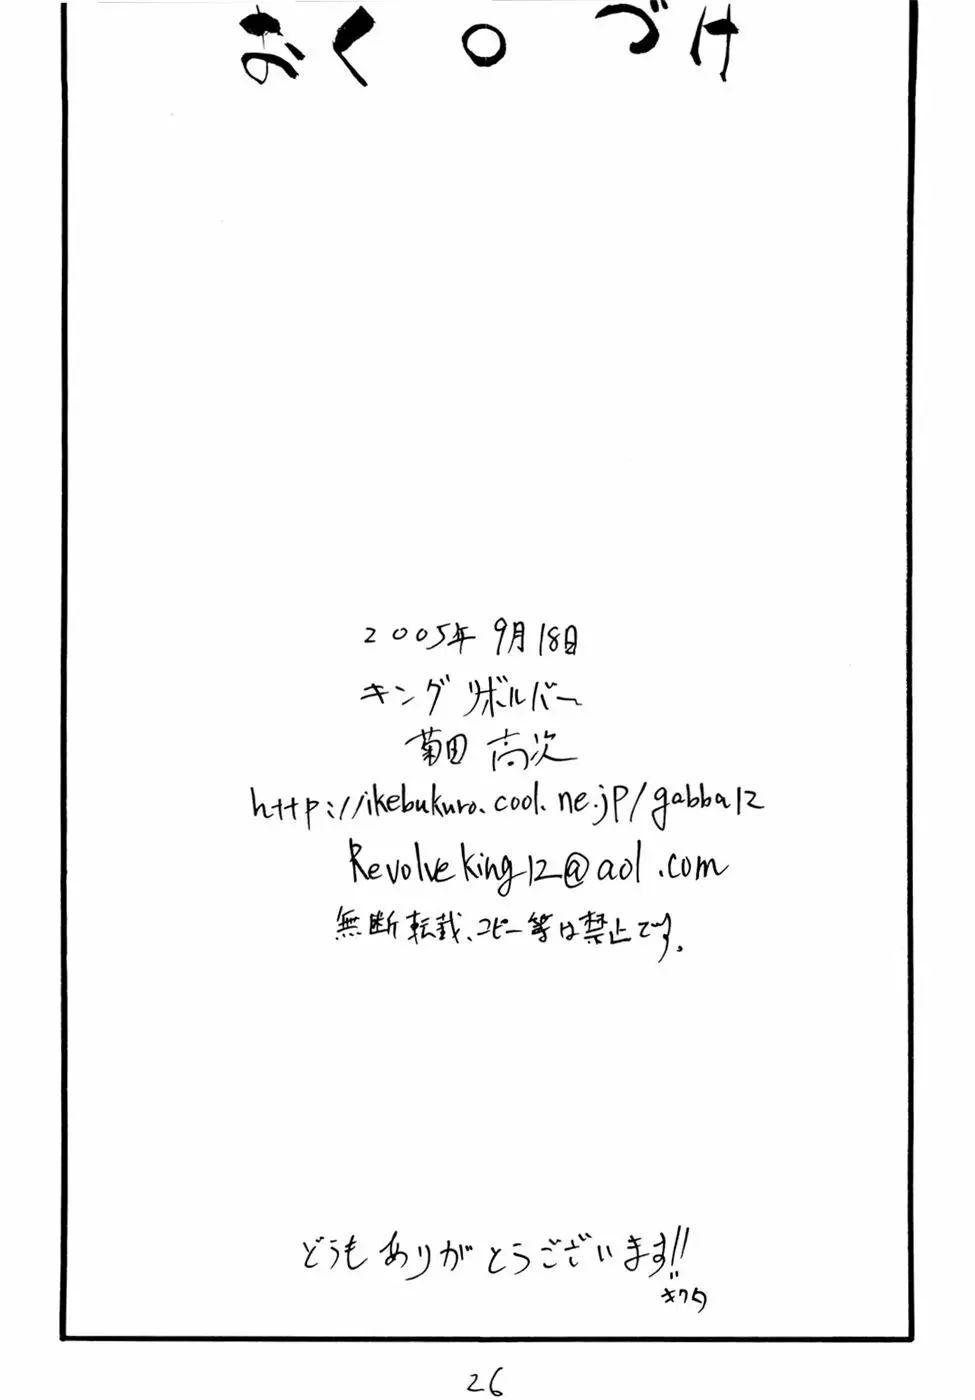 おく○づけ
2005年9月18日
キングリボルバー
菊田 高次
http://ikebukuro.cool.ne.jp/gabba12
Revolveking12@aol.com
無断転載、コピー等は禁止です。
どうもありがとうございます!!
キクタ
26